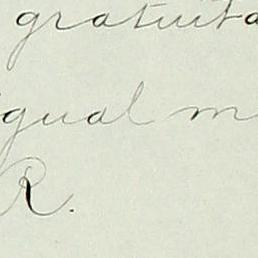 gratuita
igual m
R.